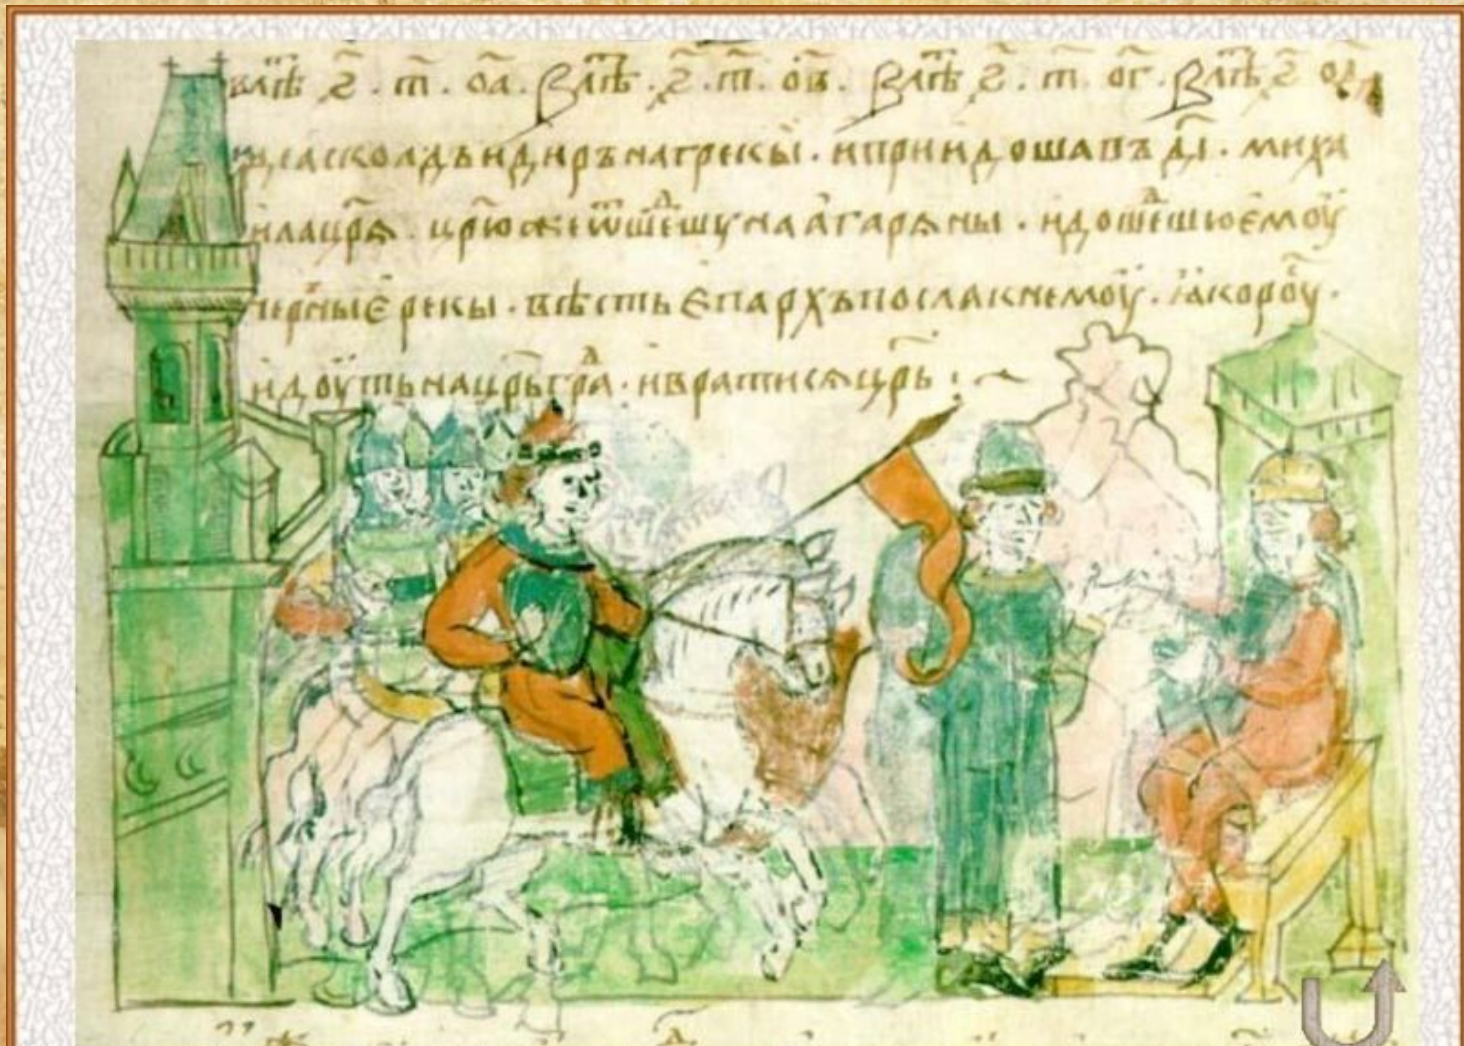 влѣⷮ ҂ѕ҃ . т҃ . о҃а . Влѣⷮ . ҂ѕ҃ . т҃ . о҃в . Влѣⷮ ҂ѕ҃ . т҃ . о҃г . Влѣⷮ ҂ѕ҃
идеасколдъидирънагрекы . иприидошавъ д҃і . миха
илацр҃ѧ . цр҃южеѿшеⷣшунаагарѧны . идошеⷣшюємоу
черныє рекы . вѣсть єпархъпослакнемоу . ꙗкороуⷭ .
идоутьнацр҃ьграⷣ . ивратисѧцр҃ь :~